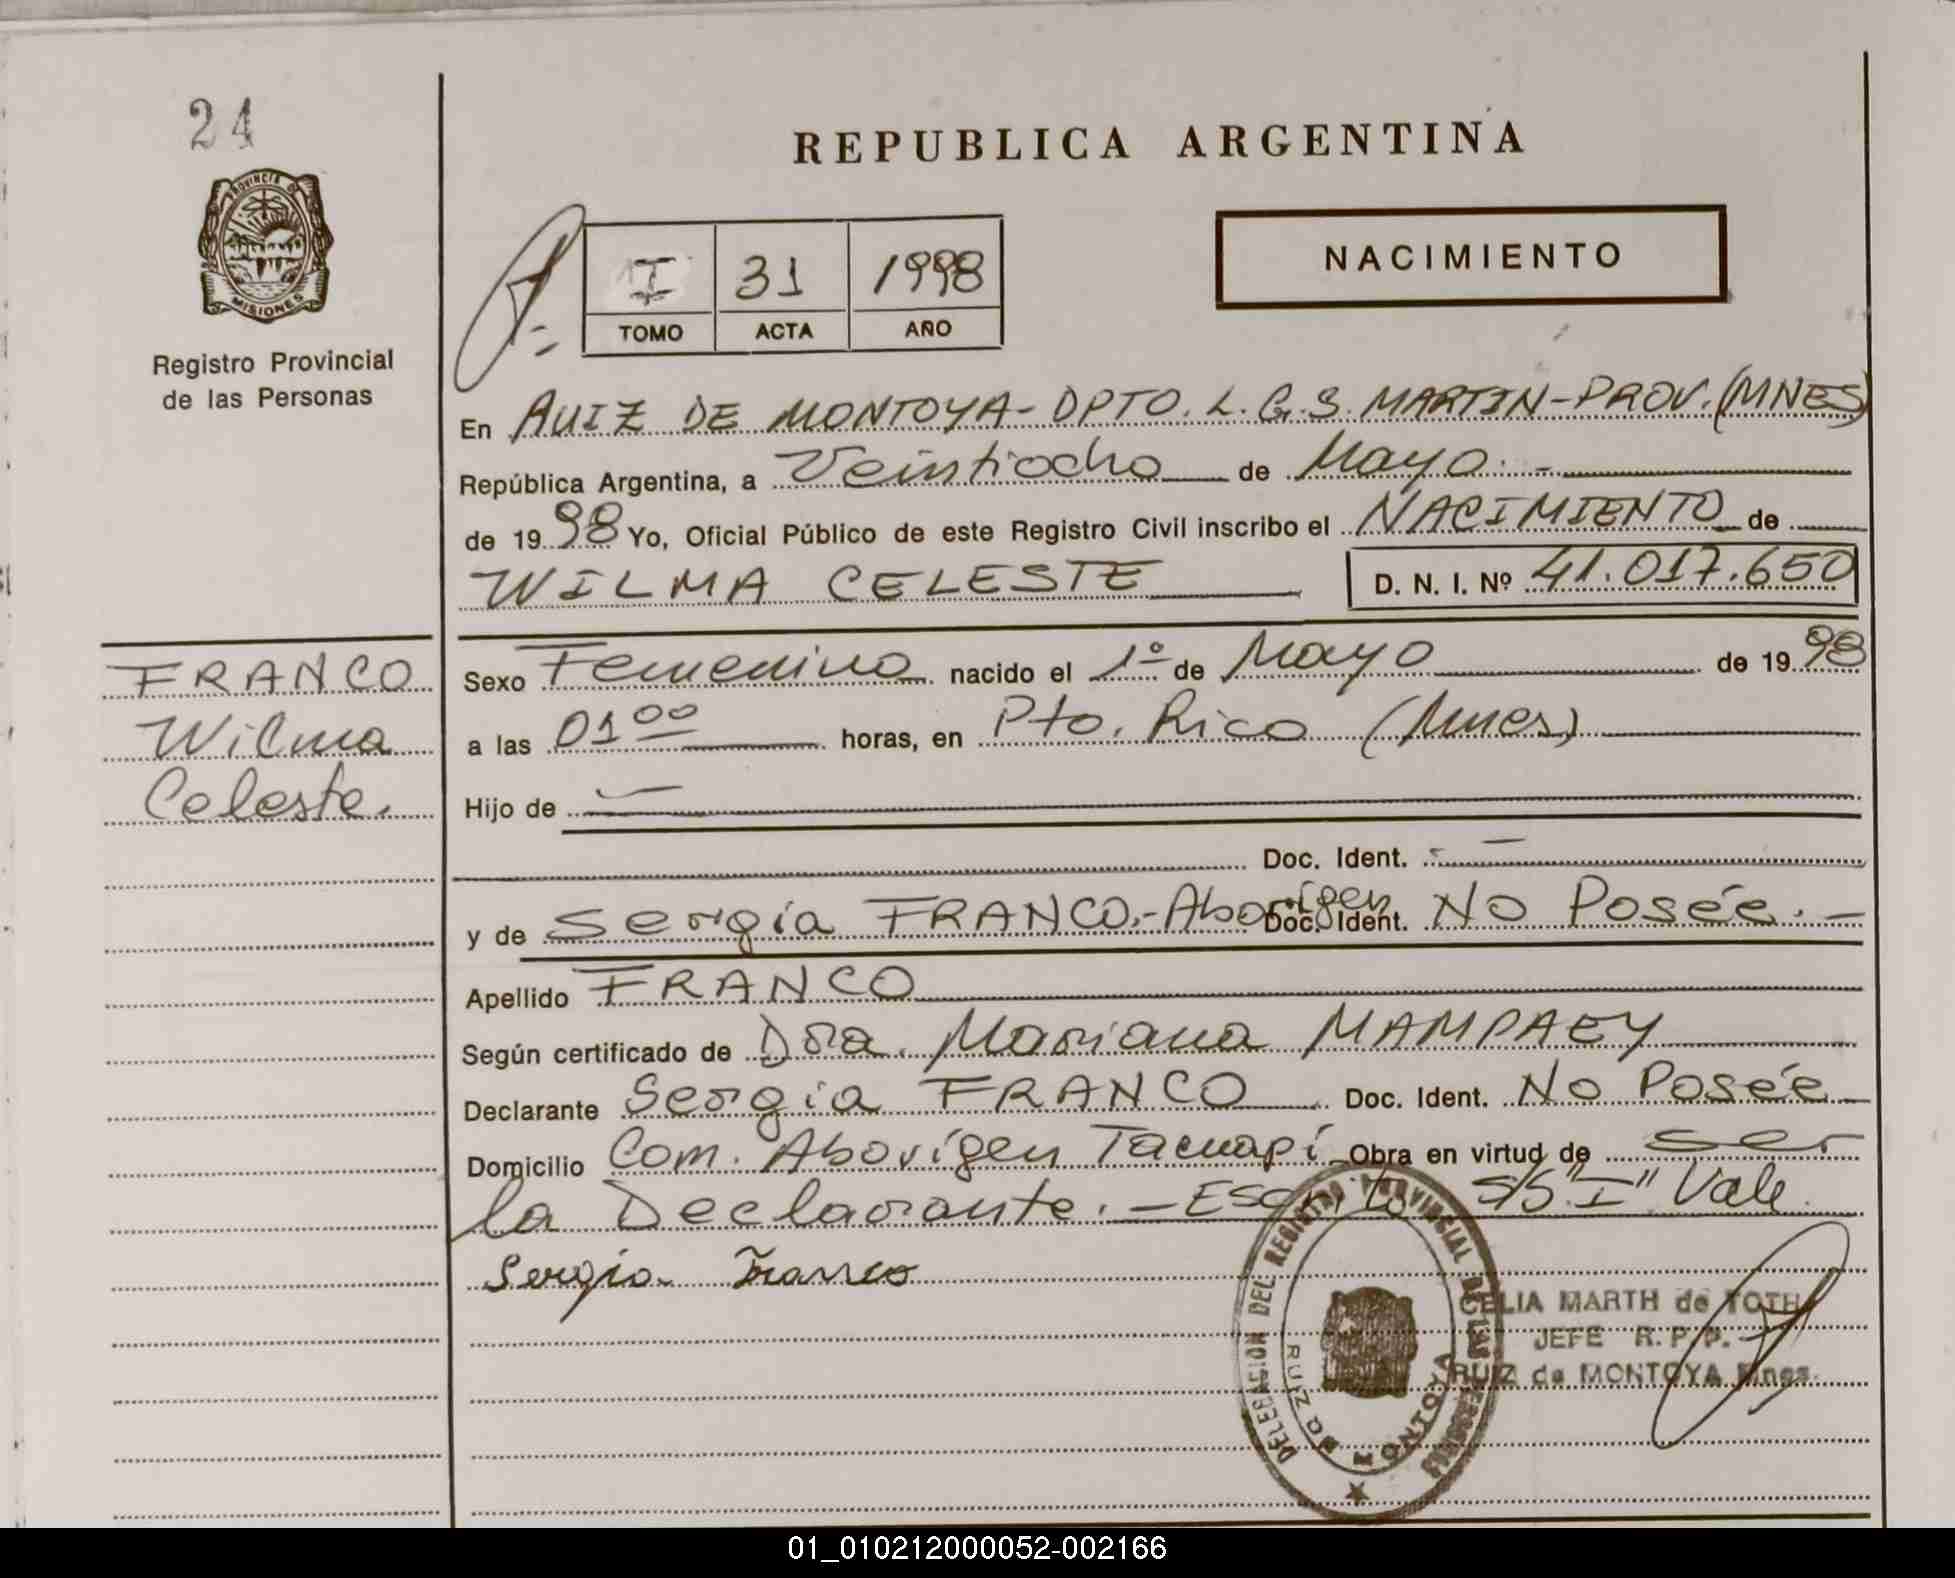 24
PROVINCIA DE
MISIONES
Registro Provincial
de las Personas
REPUBLICA ARGENTINA
I 31 1998
TOMO ACTA AÑO
NACIMIENTO
En RUIZ DE MONTOYA-DPTO. L.G.S. MARTIN-PROV. (MNES)
República Argentina, a Veintiocho de Mayo.-
de 1998 Yo, Oficial Público de este Registro Civil inscribo el NACIMIENTO de
WILMA CELESTE D. N. I. Nº 41.017.650
FRANCO
Wilma
Celeste.
Sexo Femenino nacido el 1º de Mayo de 1998
a las 01 00 horas, en Pto. Rico (Mnes)
Hijo de —
Doc. Ident. -
y de Sergia FRANCO.-Aborígen Doc. Ident. No Posée.-
Apellido FRANCO
Según certificado de Dra. Mariana MAMPAEY
Declarante Sergia FRANCO Doc. Ident. No Posée
Domicilio Com. Aborígen Tacuapí Obra en virtud de ser
la Declarante.-Escrito s/s "I" Vale.
Sergia Franco
DELEGACION DEL REGISTRO PROVINCIAL DE LAS PERSONAS
RUIZ DE MONTOYA
CELIA MARTH de TOTH
JEFE R.P.P.
RUIZ de MONTOYA Mnes.
01_010212000052-002166